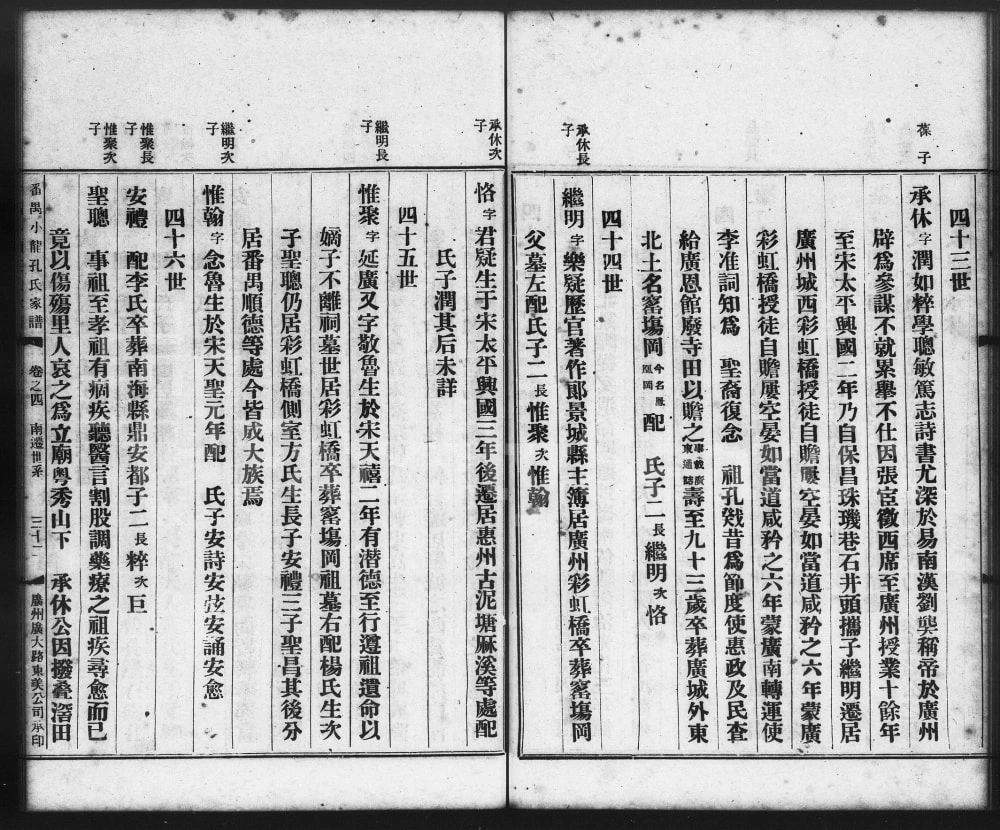 四十三世
葆子
承休字潤如粹學聰敏篤志詩書尤深於易南漢劉龑稱帝於廣州
辟爲參謀不就累舉不仕因張宸徵西席至廣州授業十餘年
至宋太平興國二年乃自保昌珠璣巷石井頭攜子繼明遷居
廣州城西彩虹橋授徒自贍屢空晏如當道咸矜之六年蒙廣
彩虹橋授徒自贍屢空晏如當道咸矜之六年蒙廣南轉運使
李准詞知爲 聖裔復念 祖孔戣昔爲節度使惠政及民查
給廣恩館廢寺田以贍之事載廣東通誌壽至九十三歲卒葬廣城外東
北土名窰塲岡今名鳳凰岡配 氏子二長繼明次恪
四十四世
承休長子
繼明字樂疑歷官著作郎景城縣主簿居廣州彩虹橋卒葬窰塲岡
父墓左配氏子二長惟聚次惟翰
承休次子
恪字君疑生于宋太平興國三年後遷居惠州古泥塘麻溪等處配
氏子潤其后未詳
四十五世
繼明長子
惟聚字延廣又字敬魯生於宋天禧二年有潛德至行遵祖遺命以
嫡子不離祠墓世居彩虹橋卒葬窰塲岡祖墓右配楊氏生次
子聖聰仍居彩虹橋側室方氏生長子安禮三子聖昌其後分
居番禺順德等處今皆成大族焉
繼明次子
惟翰字念魯生於宋天聖元年配 氏子安詩安弦安誦安愈
四十六世
惟聚長子
安禮 配李氏卒葬南海縣鼎安都子二長粹次巨
惟聚次子
聖聰 事祖至孝祖有痼疾聽醫言割股調藥療之祖疾尋愈而已
竟以傷殤里人哀之爲立廟粵秀山下 承休公因撥叠滘田
番禺小龍孔氏家譜 卷之四 南遷世系 三十二 廣州廣大路東美公司承印